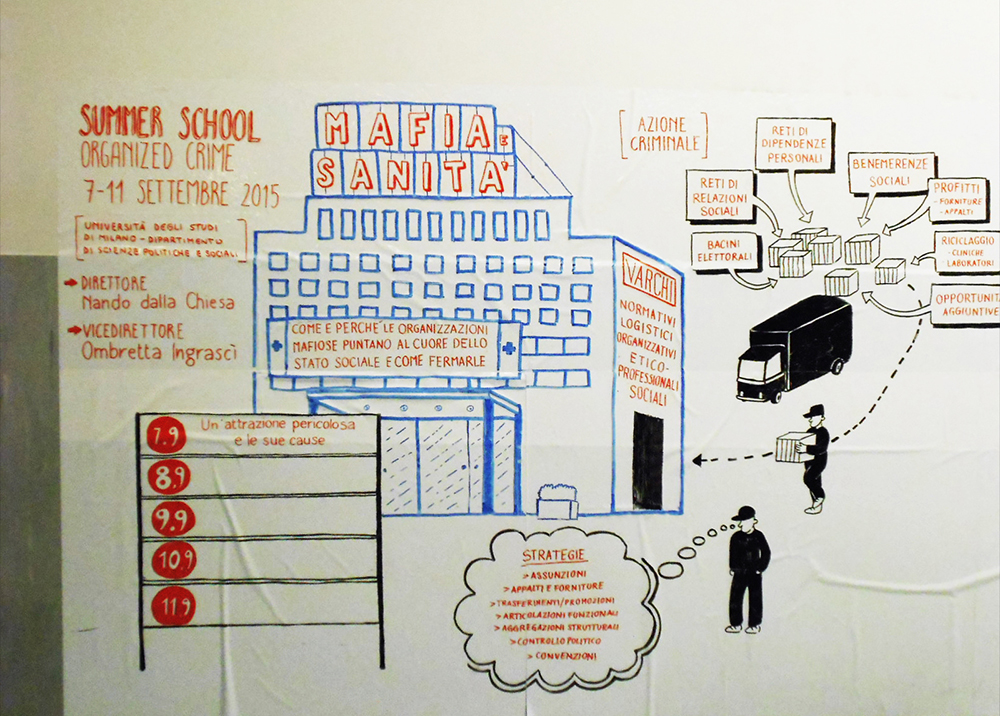 SUMMER SCHOOL
ORGANIZED CRIME
7-11 SETTEMBRE 2015
[UNIVERSITÀ DEGLI STUDI
DI MILANO - DIPARTIMENTO
DI SCIENZE POLITICHE E SOCIALI]
DIRETTORE
Nando dalla Chiesa
VICEDIRETTORE
Ombretta Ingrascì
MAFIA E
SANITA'
COME E PERCHE' LE ORGANIZZAZIONI
MAFIOSE PUNTANO AL CUORE DELLO
STATO SOCIALE E COME FERMARLE
VARCHI
NORMATIVI
LOGISTICI
ORGANIZZATIVI
ETICO-
PROFESSIONALI
SOCIALI
7.9 Un'attrazione pericolosa
e le sue cause
8.9
9.9
10.9
11 9
[AZIONE
CRIMINALE]
RETI DI
DIPENDENZE
PERSONALI
BENEMERENZE
SOCIALI
RETI DI
RELAZIONI
SOCIALI
PROFITTI
- FORNITURE
- APPALTI
BACINI
ELETTORALI
RICICLAGGIO
- CLINICHE
- LABORATORI
OPPORTUNITA
AGGIUNTIVE
STRATEGIE
> ASSUNZIONI
> APPALTI E FORNITURE
> TRASFERIMENTI/PROMOZIONI
> ARTICOLAZIONI FUNZIONALI
> AGGREGAZIONI STRUTTURALI
> CONTROLLO POLITICO
> CONVENZIONI